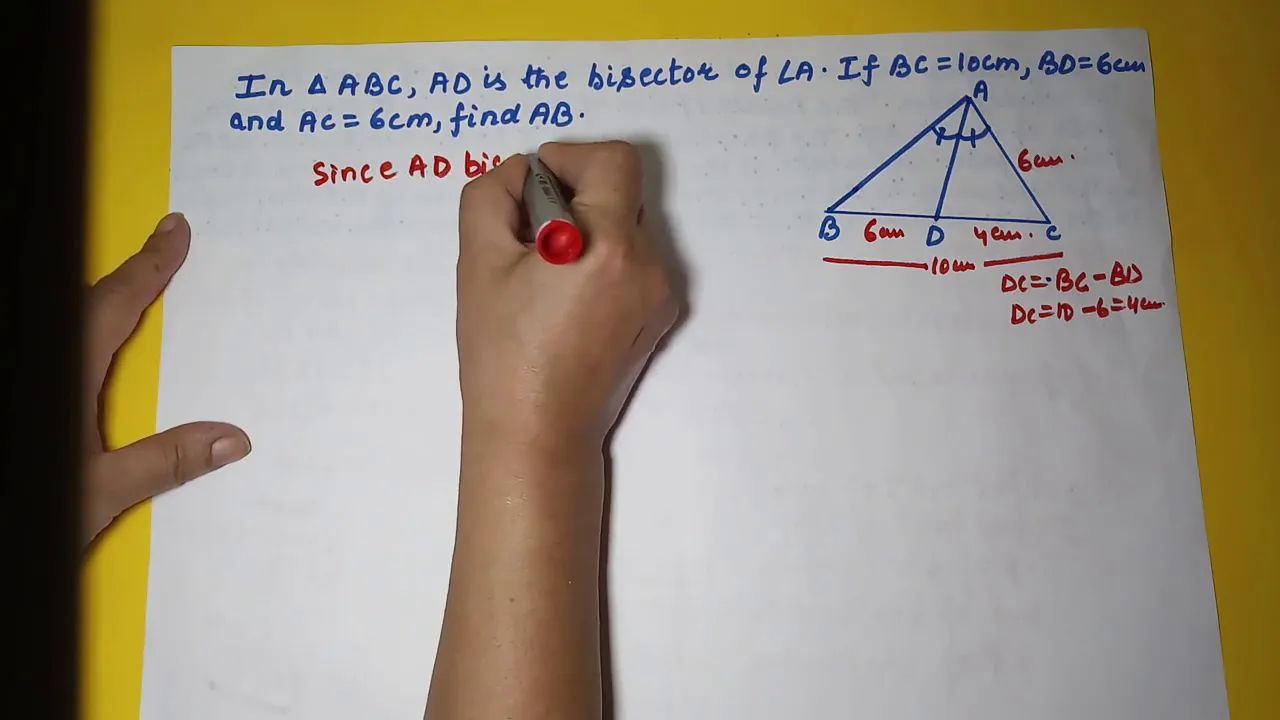 In △ ABC, AD is the bisector of ∠A. If BC = 10cm, BD = 6cm
and AC = 6cm, find AB.
Since AD
A
6cm.
B 6cm D 4cm. C
10cm
DC = BC - BD
DC = 10 - 6 = 4cm